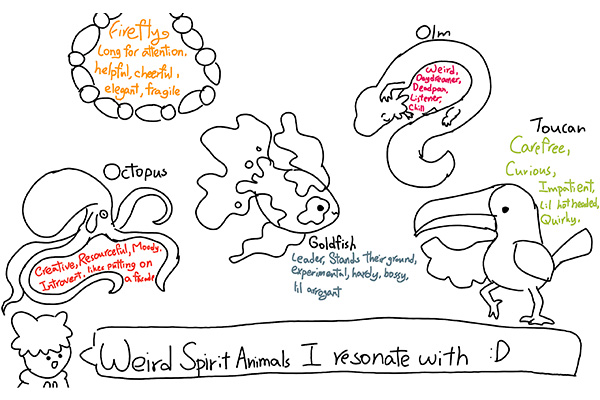 Firefly
Long for attention.
helpful, cheerful,
elegant, fragile
Olm
Weird,
Daydreamer,
Deadpan,
Listener,
Chill
Toucan
Carefree,
Curious,
Impatient,
lil hotheaded,
Quirky.
Octopus
Creative, Resourceful, Moody.
Introvert, likes putting on
a facade
Goldfish
Leader, Stands their ground,
experimental, hardy, bossy,
lil arrogant
Weird Spirit Animals I resonate with :D